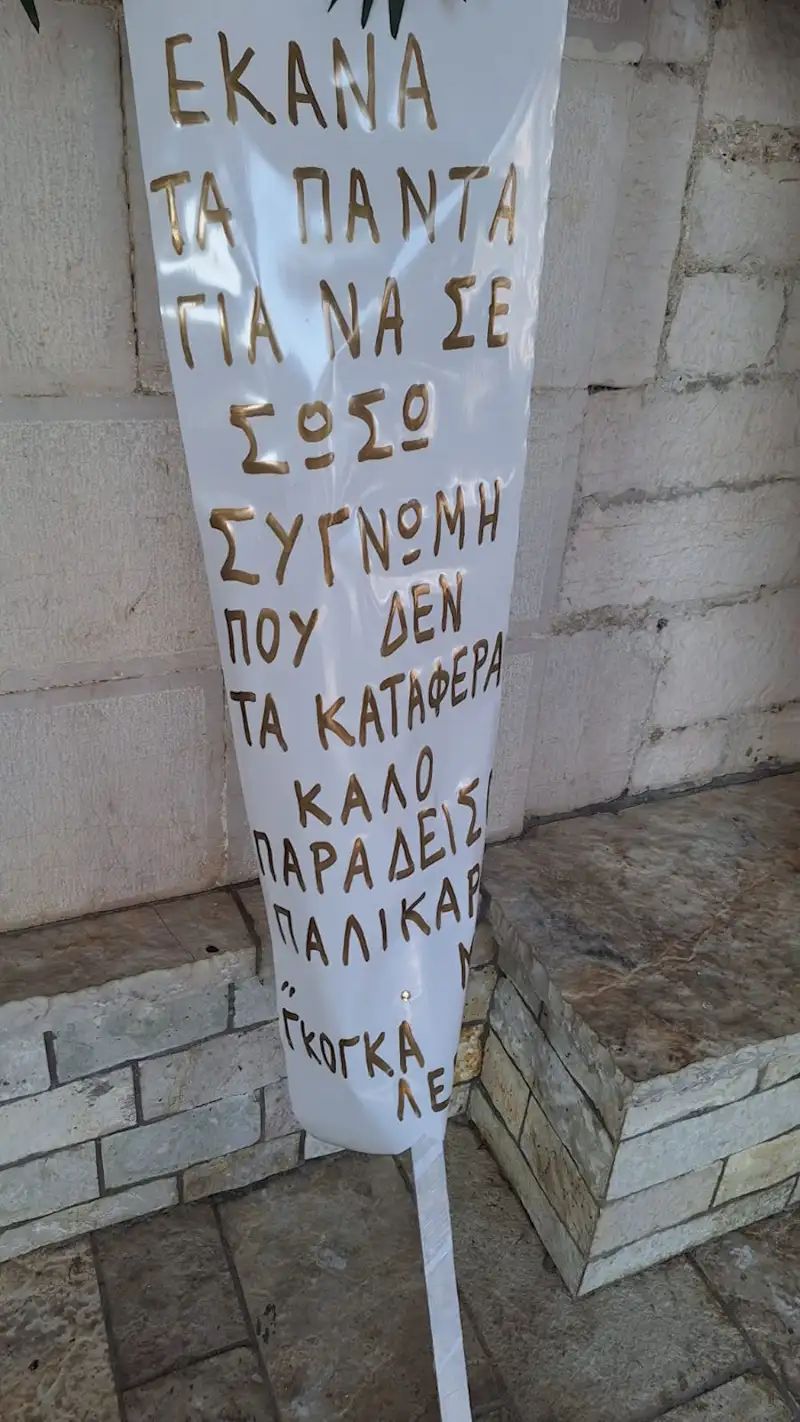 ΕΚΑΝΑ
ΤΑ ΠΑΝΤΑ
ΓΙΑ ΝΑ ΣΕ
ΣΩΣΩ
ΣΥΓΝΩΜΗ
ΠΟΥ ΔΕΝ
ΤΑ ΚΑΤΑΦΕΡΑ
ΚΑΛΟ
ΠΑΡΑΔΕΙΣ
ΠΑΛΙΚΑΡ
"ΓΚΟΓΚΑ
ΛΕ